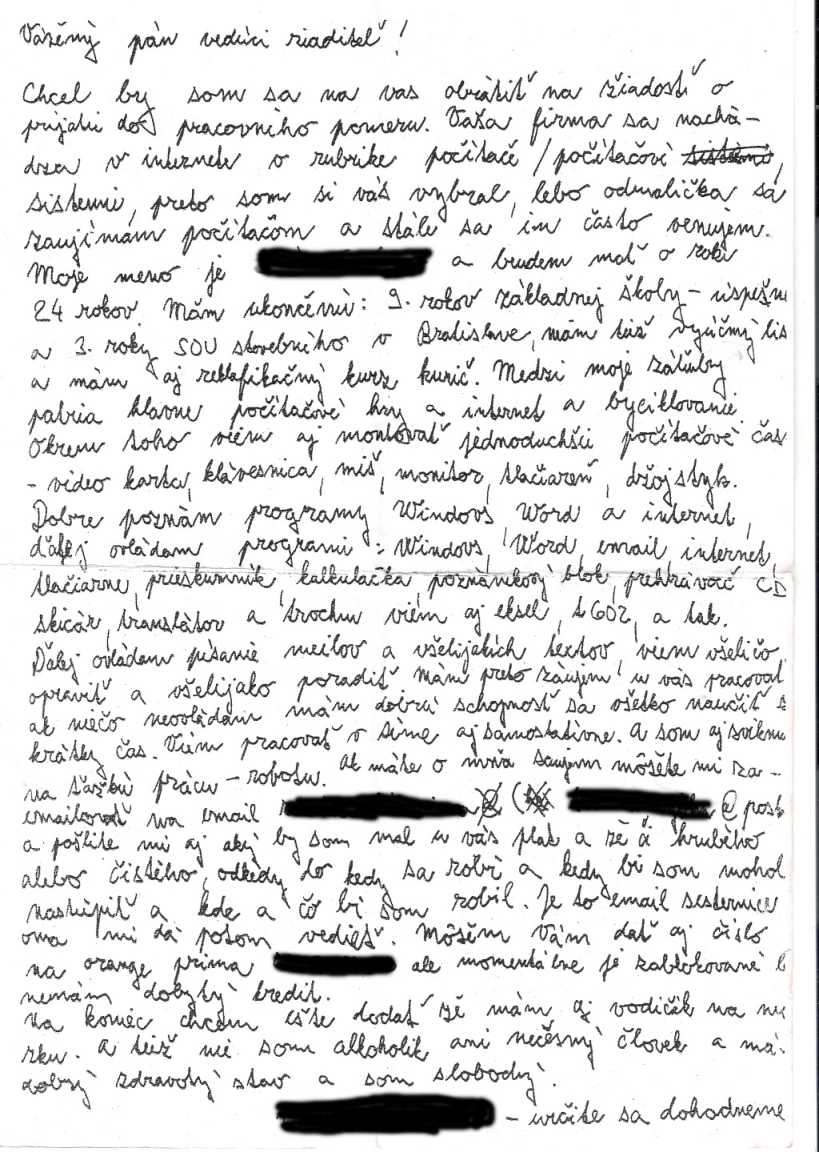 Vážěný pán vedúci riaditeľ!
Chcel by som sa na vas obrátiť na žiadosť o
prijatii do pracovního pomeru. Vaša firma sa nachá-
dza v internete o rubrike počítačě / počítačové
sistemi, preto som si vás vybral, lebo odmalička sa
zaujímám počítačom a stále sa im často venujem.
Moje meno je a budem mať o roki
24 rokov. Mám ukončěnú: 9. rokov základnej školy - úspešne
a 3. roky SOU stovebního v Bratislave, mám tiéž vyúčný lis
a mám aj reklafikačný kurz kurič. Medzi moje zátuby
patria hlavne počítačové hry a internet a byciklovanie
Okrem toho viém aj montovať jednoduchšii počitačové čas
- video karta, klávesnica, miš, monitor, tlačiareň, džojstyk.
Dobre poznám programy Windovs Word a internet,
ďalej ovládam programi: Windovs, Word, email internet,
tlačiarne, prieskumník, kalkulačka, poznámkový blok, prehrávač CD
skicár, translátor a trochu viém aj eksel, t602, a tak.
Ďálej ovládam písanie meilov a všelijakích textov, viem všeličo
opraviť a všelijako poradiť mám preto záujem u vás pracovať
ak niečo neovládám mám dobrú schopnosť sa všetko naučiť
krátky čas. Viém pracovať v tíme aj samostatívne. A som aj zviknu
na ťažkú prácu - robotu. Ak máte o mňa saujem môšete mi za-
emailovať na email @post
a pošlite mi aj aký by som mal u vás plat a zě či hrubého
alebo čistého, odkedy do kedy sa robí a kedy bi som mohol
nastúpiť a kde a čo bi som robil. Je to email sesternice
oma mi dá potom vedieť. Môžěm Vám dať aj číslo
na orange prima ale momentálne je zablokované
nemám dobytý kredit.
Na koniec chcem ešte dodať zě mám aj vodičák na
rku. A tiéž nie som alkoholik ani nečěsný človek a má-
dobrý zdravotý stav a som slobodný.
- určite sa dohodneme